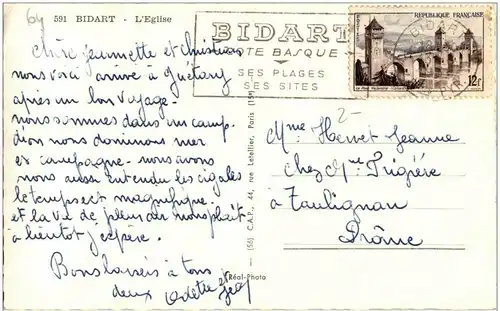 64
591 BIDART - L'Eglise
BIDART
CÔTE BASQUE
SES PLAGES
SES SITES
REPUBLIQUE FRANÇAISE
12F
Chère Jeannette et Christian
nous voici arrivé à Guétary
après un bon voyage-
nous sommes dans un camp-
dion nous dominous mer
et campagne- nous avons
nous aussi entendu les cigales
le temps est magnifique.
et la vie de plein air nous plait
à bientôt j'espère.
Bons baisers à tous
deux Odette et
Réal-Photo
(56) C.A.P., 44, rue Letellier, Paris (15e)
2-
Mme Hervet Jeanne
chez Mme
à Taulignan
Drôme